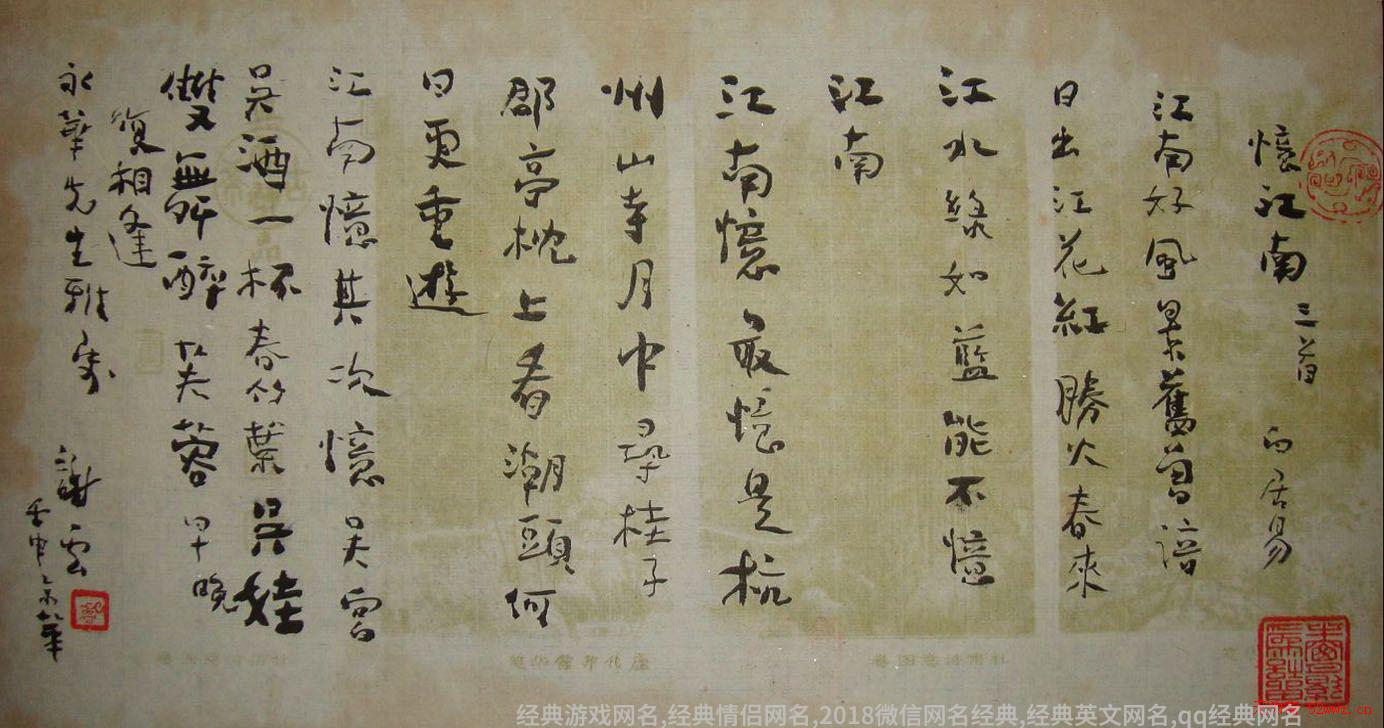 憶江南 三首 白居易
江南好風景舊曾諳
日出江花紅勝火春來
江水綠如藍能不憶
江南
江南憶最憶是杭
州山寺月中尋桂子
郡亭枕上看潮頭何
日更重遊
江南憶其次憶吳宮
吳酒一杯春竹葉吳娃
雙舞醉芙蓉早晚
復相逢
永華先生雅
謝雲
壬申
经典游戏网名,经典情侣网名,2018微信网名经典,经典英文网名,qq经典网名